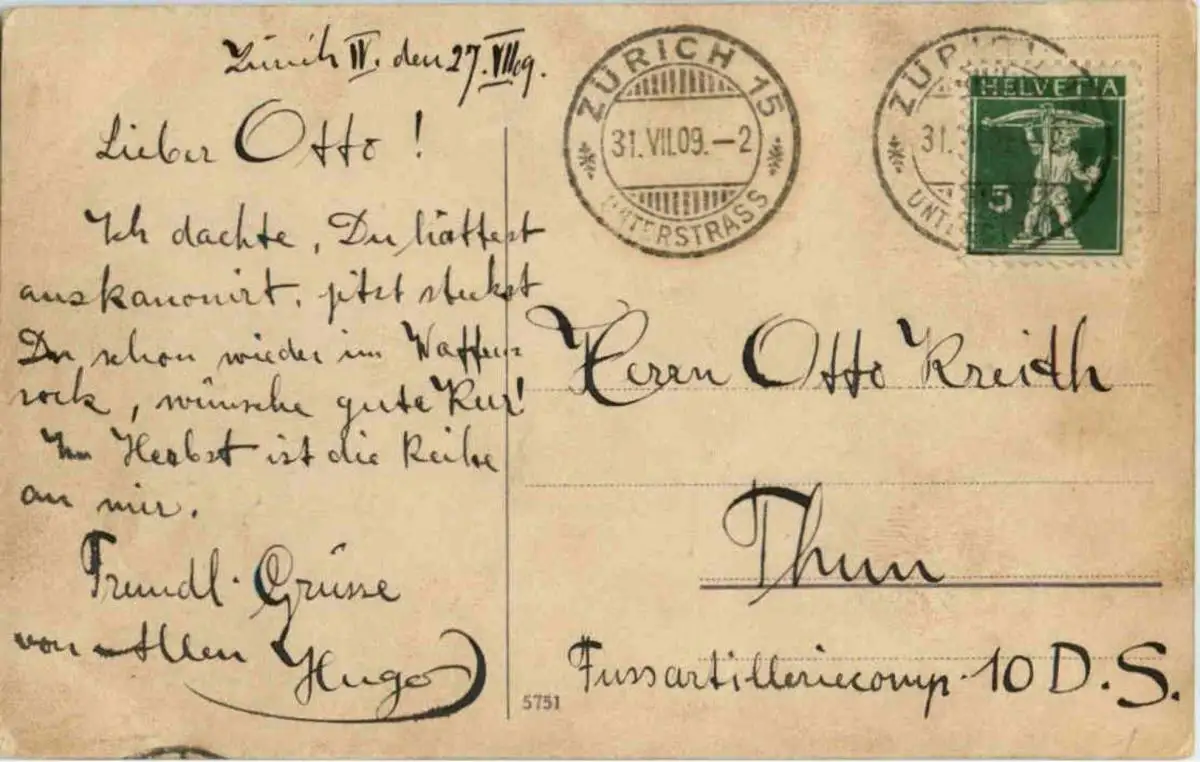 Zürich IV. den 27. VII 09.
Lieber Otto !
Ich dachte, Du hättest
auskanonirt, jetzt steckst
Du schon wieder im Waffen-
rock, wünsche gute Kur!
Im Herbst ist die Reihe
an mir.
Freundl. Grüsse
von Allen
Hugo
ZÜRICH 15
31. VII.09.–2
UNTERSTRASS
ZÜRI
31.
UNT
HELVETIA
5
Herrn Otto Kreith
Thun
Fussartilleriecomp. 10 D.S.
5751